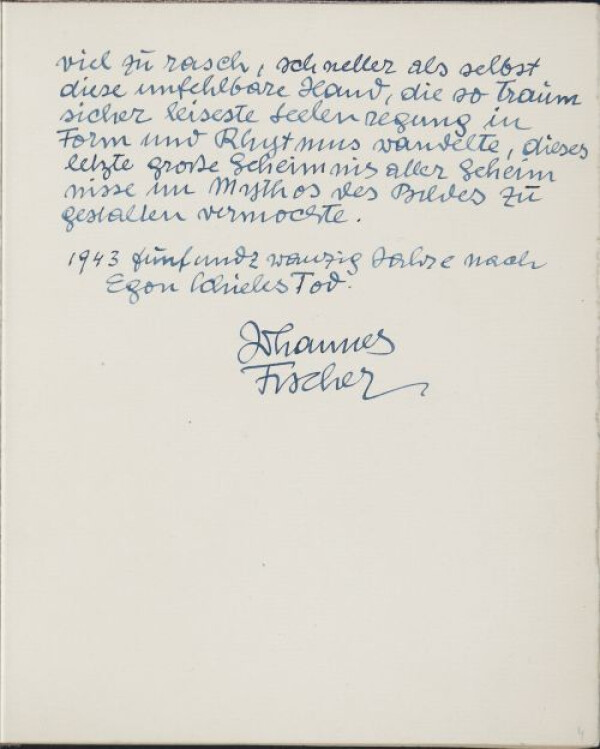 viel zu rasch, schneller als selbst
diese unfehlbare Hand, die so traum
sicher leiseste Seelenregung in
Form und Rhytmus wandelte, dieses
letzte große Geheimnis aller Geheim
nisse im Mythos des Bildes zu
gestalten vermochte.
1943 fünfundzwanzig Jahre nach
Egon Schieles Tod.
Johannes
Fischer